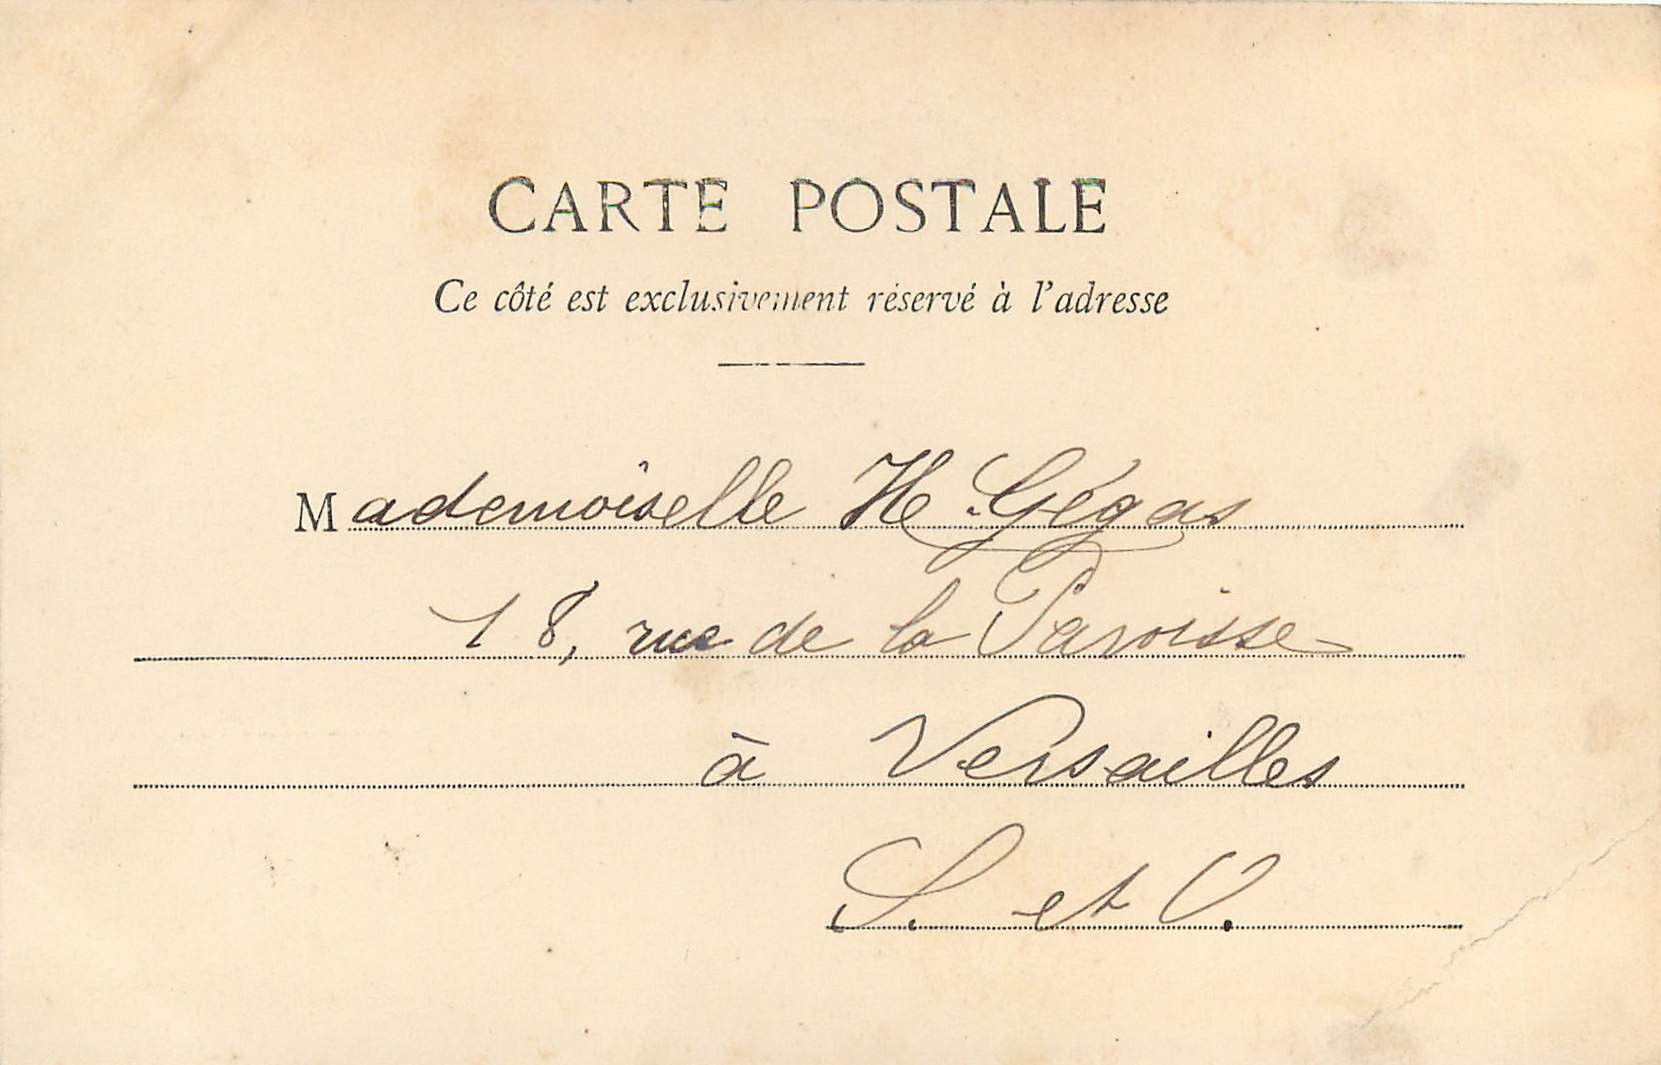 CARTE POSTALE
Ce côté est exclusivement réservé à l'adresse
Mademoiselle H. Gégas
18, rue de la Paroisse
à Versailles
S. et O.